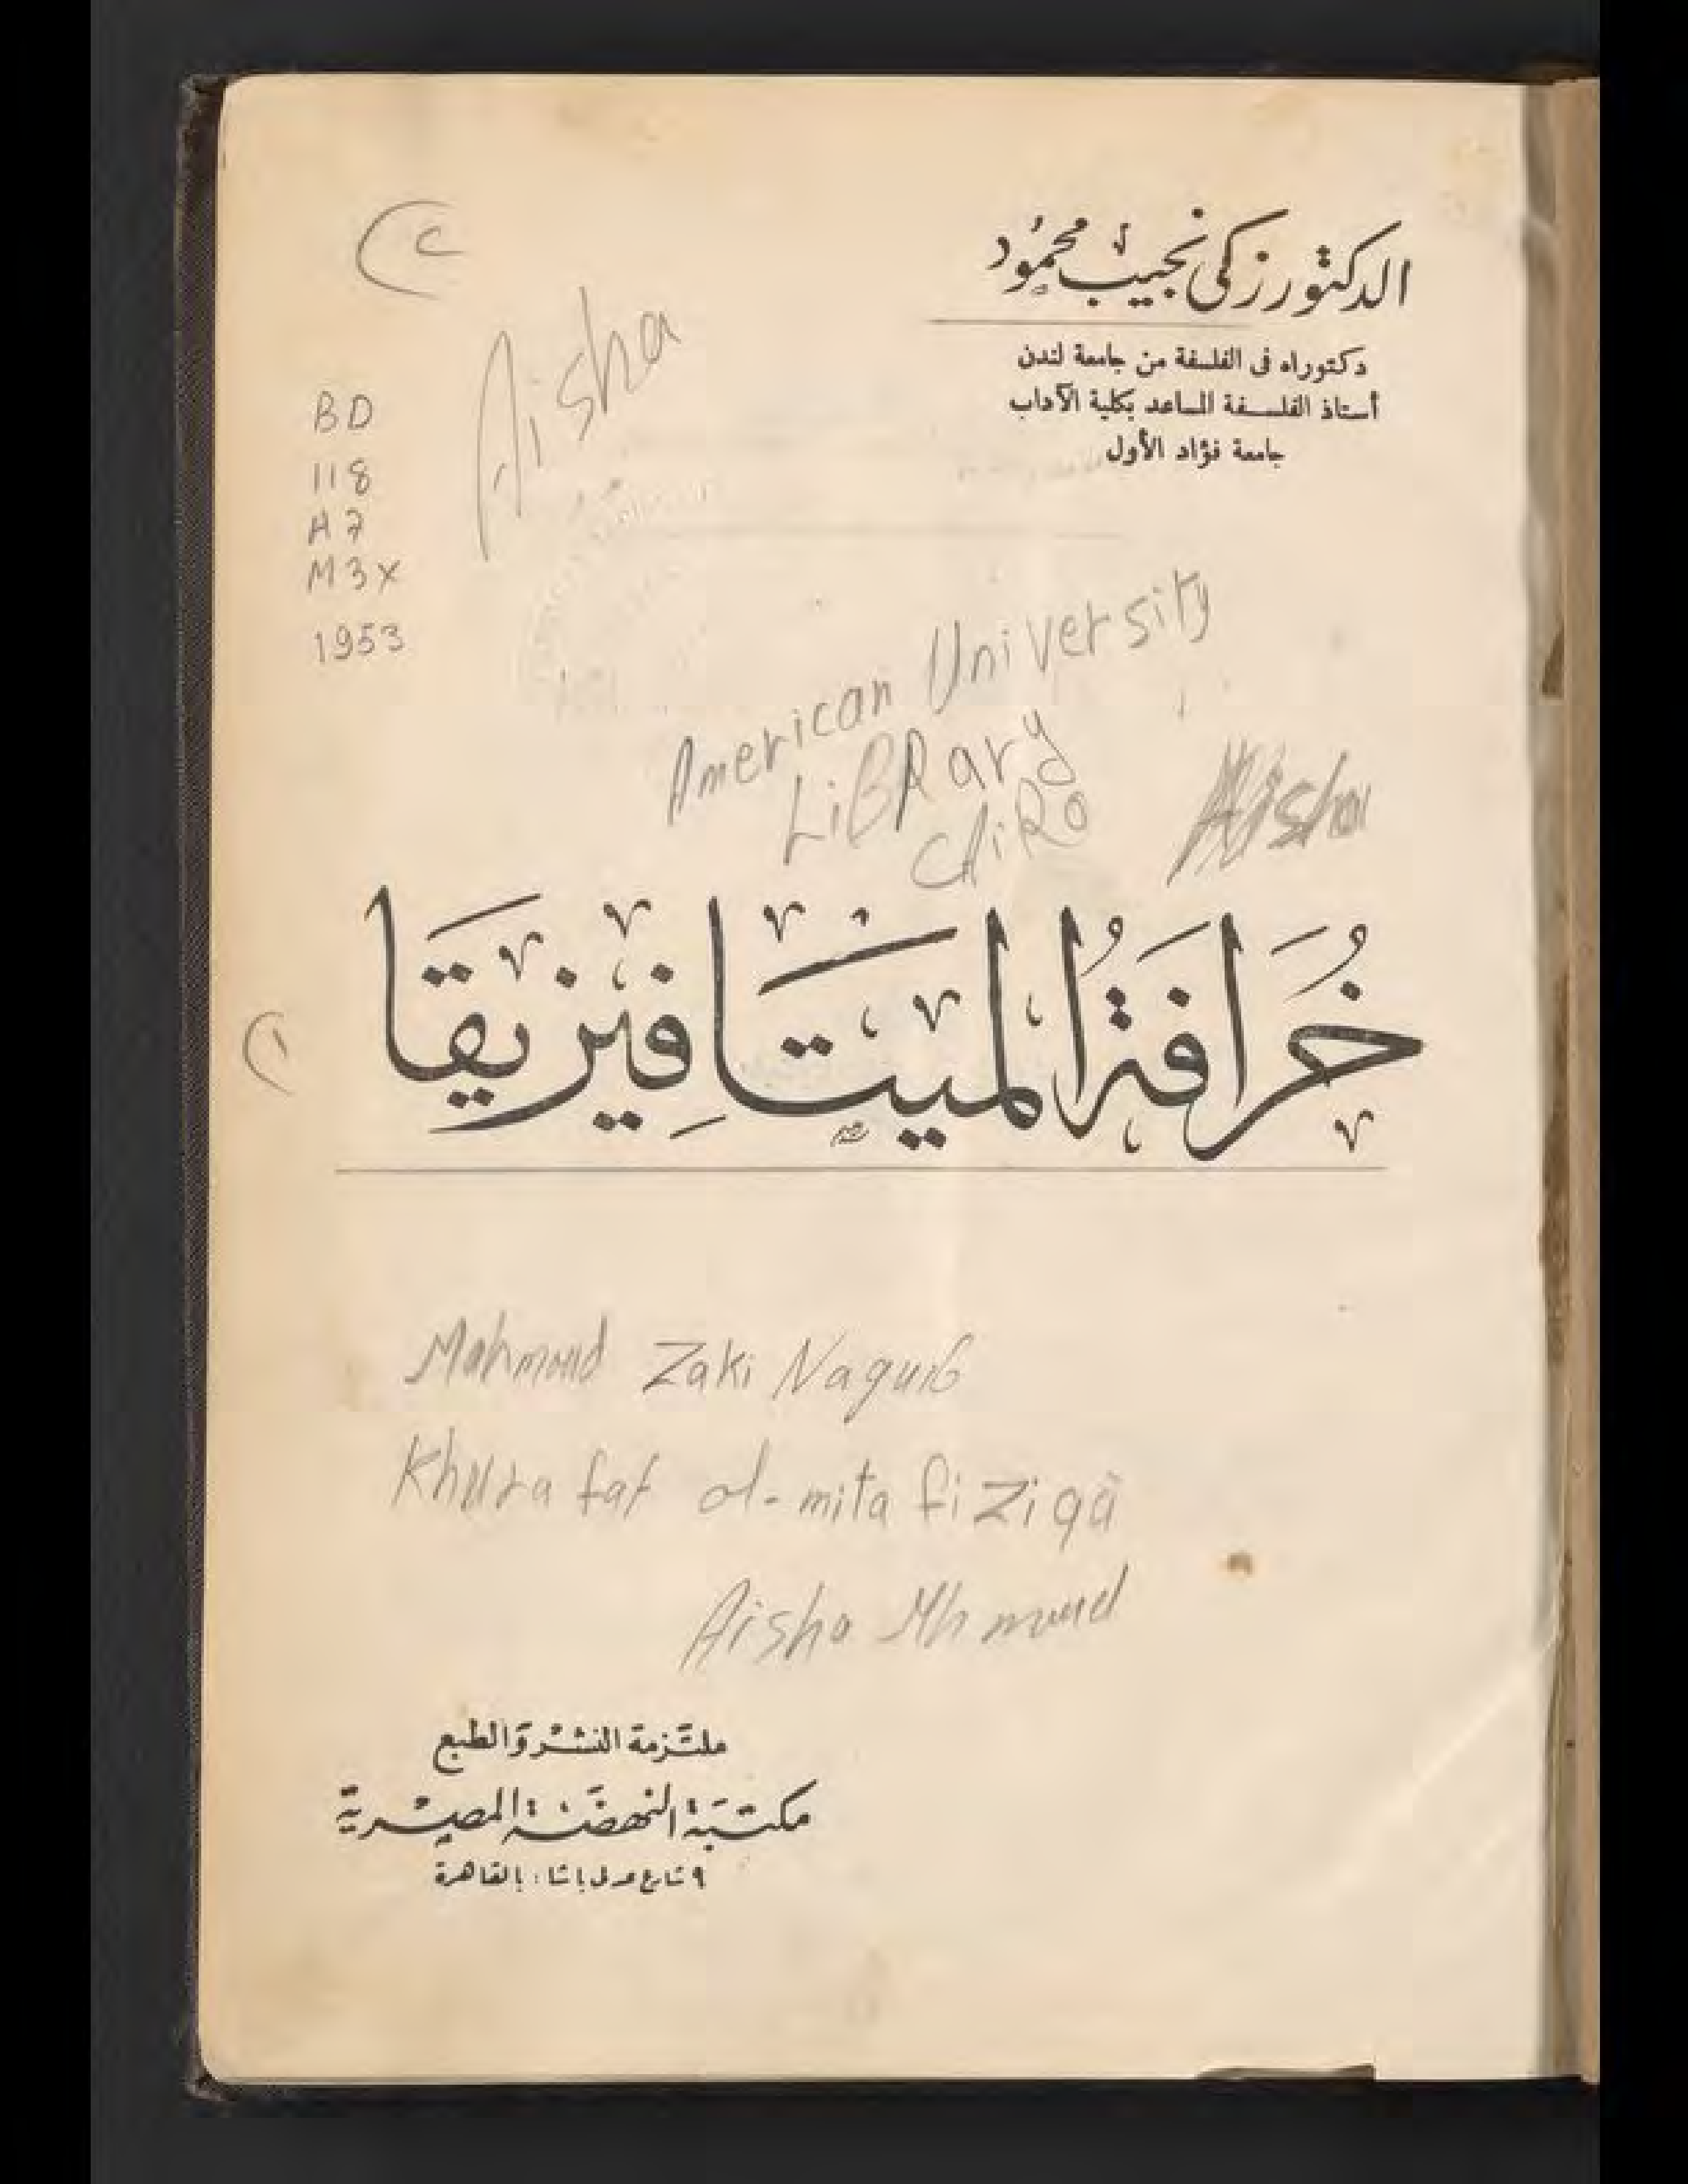 الدكتور زكى نجيب محمود
دكتوراه فى الفلسفة من جامعة لندن
أستاذ الفلسفة المساعد بكلية الآداب
جامعة فؤاد الأول
Aisha
BD
118
A7
M3x
1953
American University
LiBRary
CAiRo
Aisha
خُرَافَةُ المِيتَافِيزِيقَا
Mahmoud Zaki Naguib
Khurafat al-mita fiziqã
Aisha Mhmoud
ملتزمة النشر والطبع
مكتبة النهضة المصرية
٩ شارع عدلى باشا : بالقاهرة